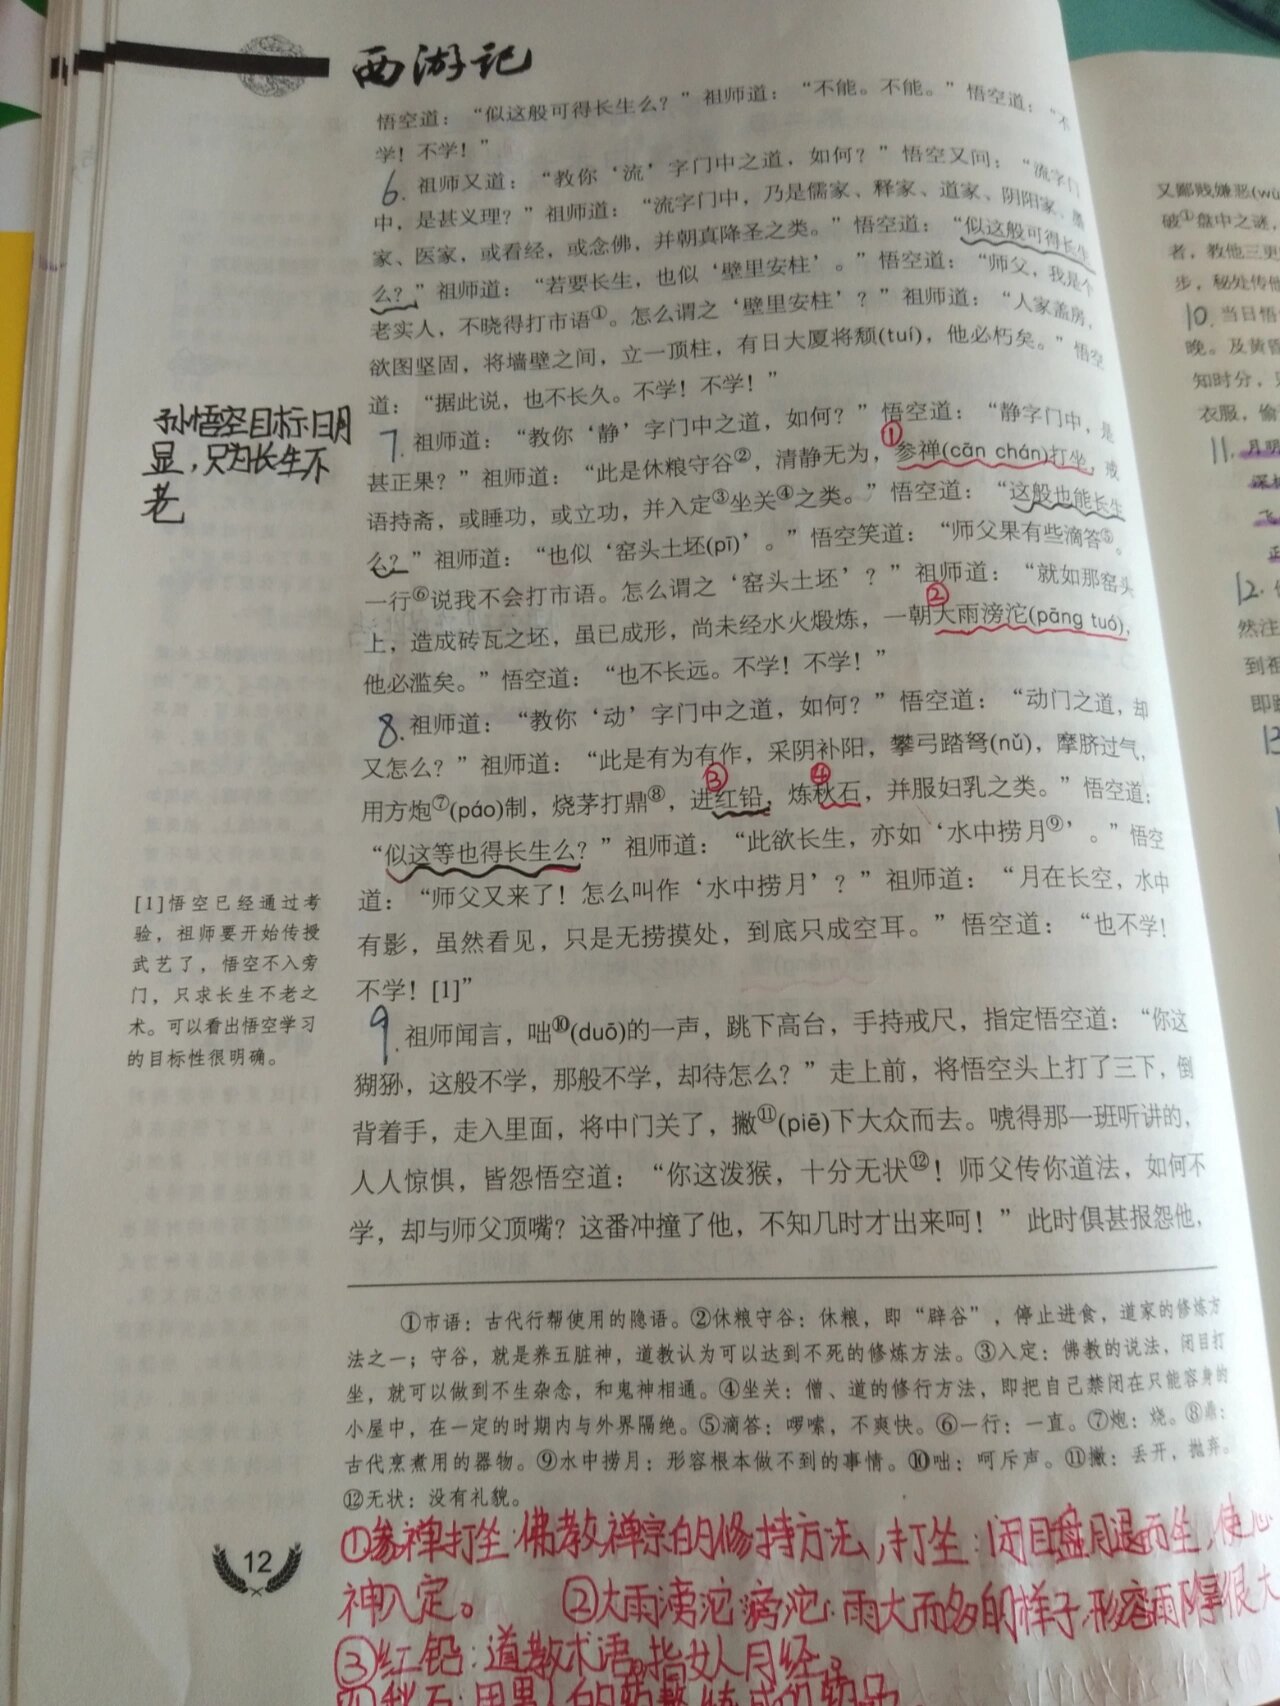 西游记
悟空道：“似这般可得长生么？”祖师道：“不能。不能。”悟空道：“不
学！不学！”
6. 祖师又道：“教你‘流’字门中之道，如何？”悟空又问：“流字门
中，是甚义理？”祖师道：“流字门中，乃是儒家、释家、道家、阴阳家、墨
家、医家，或看经，或念佛，并朝真降圣之类。”悟空道：“似这般可得长生
么？”祖师道：“若要长生，也似‘壁里安柱’。”悟空道：“师父，我是个
老实人，不晓得打市语①。怎么谓之‘壁里安柱’？”祖师道：“人家盖房，
欲图坚固，将墙壁之间，立一顶柱，有日大厦将颓(tuí)，他必朽矣。”悟空
道：“据此说，也不长久。不学！不学！”
孙悟空目标明
显，只为长生不
老
7. 祖师道：“教你‘静’字门中之道，如何？”悟空道：“静字门中，是
甚正果？”祖师道：“此是休粮守谷②，清静无为，①参禅(cān chán)打坐，戒
语持斋，或睡功，或立功，并入定③坐关④之类。”悟空道：“这般也能长生
么？”祖师道：“也似‘窑头土坯(pī)’。”悟空笑道：“师父果有些滴答⑤。
一行⑥说我不会打市语。怎么谓之‘窑头土坯’？”祖师道：“就如那窑头
上，造成砖瓦之坯，虽已成形，尚未经水火煅炼，一朝②大雨滂沱(pāng tuó)，
他必滥矣。”悟空道：“也不长远。不学！不学！”
8. 祖师道：“教你‘动’字门中之道，如何？”悟空道：“动门之道，却
又怎么？”祖师道：“此是有为有作，采阴补阳，攀弓踏弩(nǔ)，摩脐过气，
用方炮⑦(páo)制，烧茅打鼎⑧，进③红铅，炼④秋石，并服妇乳之类。”悟空道：
“似这等也得长生么？”祖师道：“此欲长生，亦如‘水中捞月⑨’。”悟空
道：“师父又来了！怎么叫作‘水中捞月’？”祖师道：“月在长空，水中
有影，虽然看见，只是无捞摸处，到底只成空耳。”悟空道：“也不学！
不学！[1]”
[1]悟空已经通过考
验，祖师要开始传授
武艺了，悟空不入旁
门，只求长生不老之
术。可以看出悟空学习
的目标性很明确。
9. 祖师闻言，咄⑩(duō)的一声，跳下高台，手持戒尺，指定悟空道：“你这
猢狲，这般不学，那般不学，却待怎么？”走上前，将悟空头上打了三下，倒
背着手，走入里面，将中门关了，撇⑪(piē)下大众而去。唬得那一班听讲的，
人人惊惧，皆怨悟空道：“你这泼猴，十分无状⑫！师父传你道法，如何不
学，却与师父顶嘴？这番冲撞了他，不知几时才出来呵！”此时俱甚报怨他，
①市语：古代行帮使用的隐语。②休粮守谷：休粮，即“辟谷”，停止进食，道家的修炼方
法之一；守谷，就是养五脏神，道教认为可以达到不死的修炼方法。③入定：佛教的说法，闭目打
坐，就可以做到不生杂念，和鬼神相通。④坐关：僧、道的修行方法，即把自己禁闭在只能容身的
小屋中，在一定的时期内与外界隔绝。⑤滴答：啰嗦，不爽快。⑥一行：一直。⑦炮：烧。⑧鼎：
古代烹煮用的器物。⑨水中捞月：形容根本做不到的事情。⑩咄：呵斥声。⑪撇：丢开，抛弃。
⑫无状：没有礼貌。
12
①参禅打坐：佛教禅宗的修持方法，打坐：闭目盘腿而坐，使心
神入定。 ②大雨滂沱 滂沱：雨大而多的样子 形容雨下得很大
③红铅：道教术语。指女人月经。
又鄙贱嫌恶(wù
破①盘中之谜，
者，教他三更
步，秘处传他
10. 当日悟
晚。及黄昏
知时分，
衣服，偷
11. 月明
深
飞
12.
然注
到祖
即